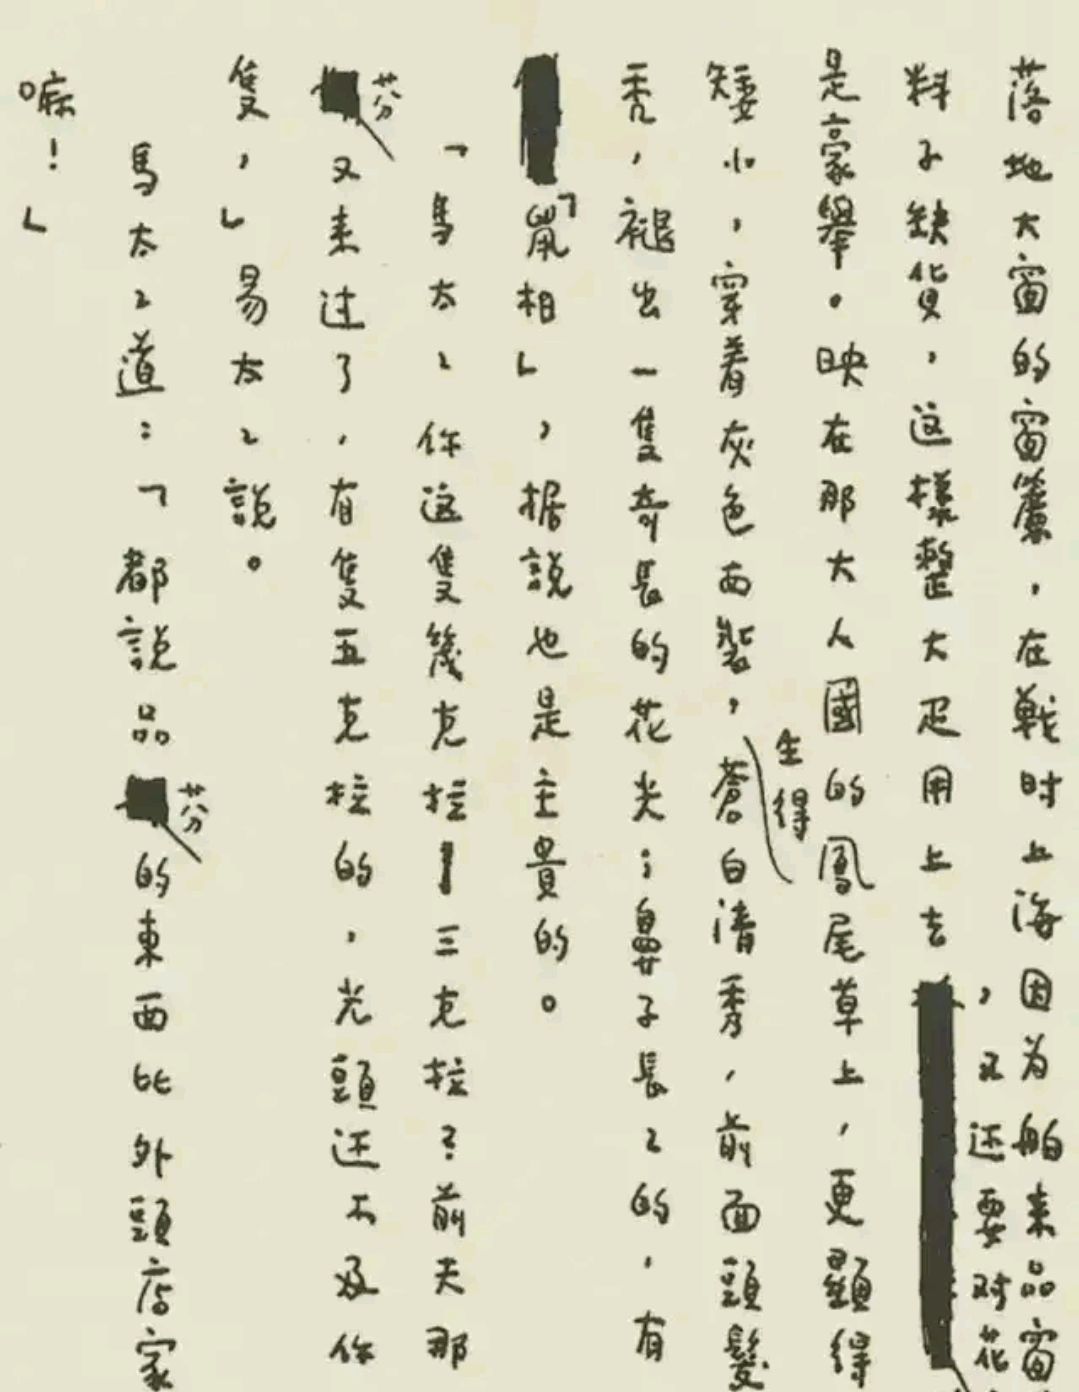 落地大窗的窗簾，在戰时上海因为舶来品窗
，又还要对花
料子缺貨，这樣整大疋用上去
是豪舉。映在那大人國的鳳尾草上，更顯得
生得
矮小，穿着灰色西裝，蒼白清秀，前面頭髮
秃，褪出一隻奇長的花尖；鼻子長〻的，有
「鼠相」，据説也是主貴的。
「馬太〻你这隻幾克拉—三克拉？前天那
芬
又来过了，有隻五克拉的，光頭还不及你
隻，」易太〻説。
馬太〻道：「都説品
芬
的東西比外頭店家
嚜！」